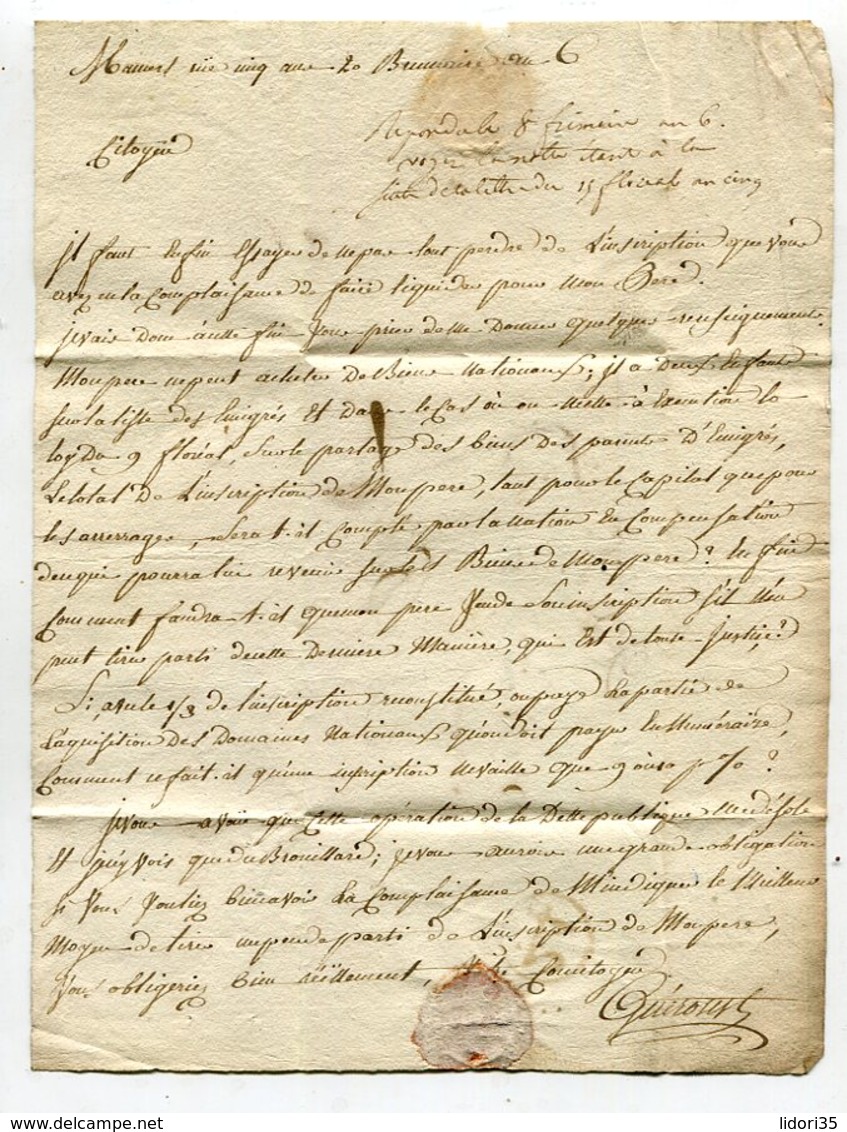 Mamers rüe cinq ans 20 Brumaire an 6
Repondu le 8 frimaire an 6.
Citoyen
voyez la notte étant à la
suite de sa lettre du 15 floréal an cinq
jl faut Enfin Essayer de ne pas tout perdre de L'inscription que vous
avez eu la Complaisance de faire liquider pour mon Pere.
je vais donc à cette fin Vous prier de me Donner quelques renseignements.
Mon pere ne peut acheter De Biens Nationaux; jl a deux Enfants
sur la liste des Emigrés Et dans le Cas où on Mette à Execution la
loy Du 9 floréal, sur le partage des biens Des parents D'Emigrés,
Le total De L'inscription de Mon pere, tant pour le Capital que pour
les arrerages, sera-t-il Compté par la nation En Compensation
de ce qui pourra lui revenir sur les Biens de Mon pere? Enfin
Comment faudra-t-il que mon pere Vende son inscription s'il n'en
peut tirer parti de cette Derniere Maniere, qui Est de toute Justice?
Si, avec le 1/3 de l'inscription reconstitué, on paye La partie de
L'aquisition Des Domaines Nationaux qu'on doit payer En Numéraire,
Comment se fait-il qu'une inscription ne vaille que 9 à 10 p %?
je vous avoüe que Cette opération de la Dette publique me désole
Et je n'y vois que du Brouillard; je vous aurois une grande obligation
si Vous Vouliez bien avoir La Complaisance de M'indiquer le Meilleur
Moyen de tirer un peu de parti de L'inscription de Mon pere,
Vous obligeriez bien réëllement, Votre Concitoyen
Guéroust
lidori35